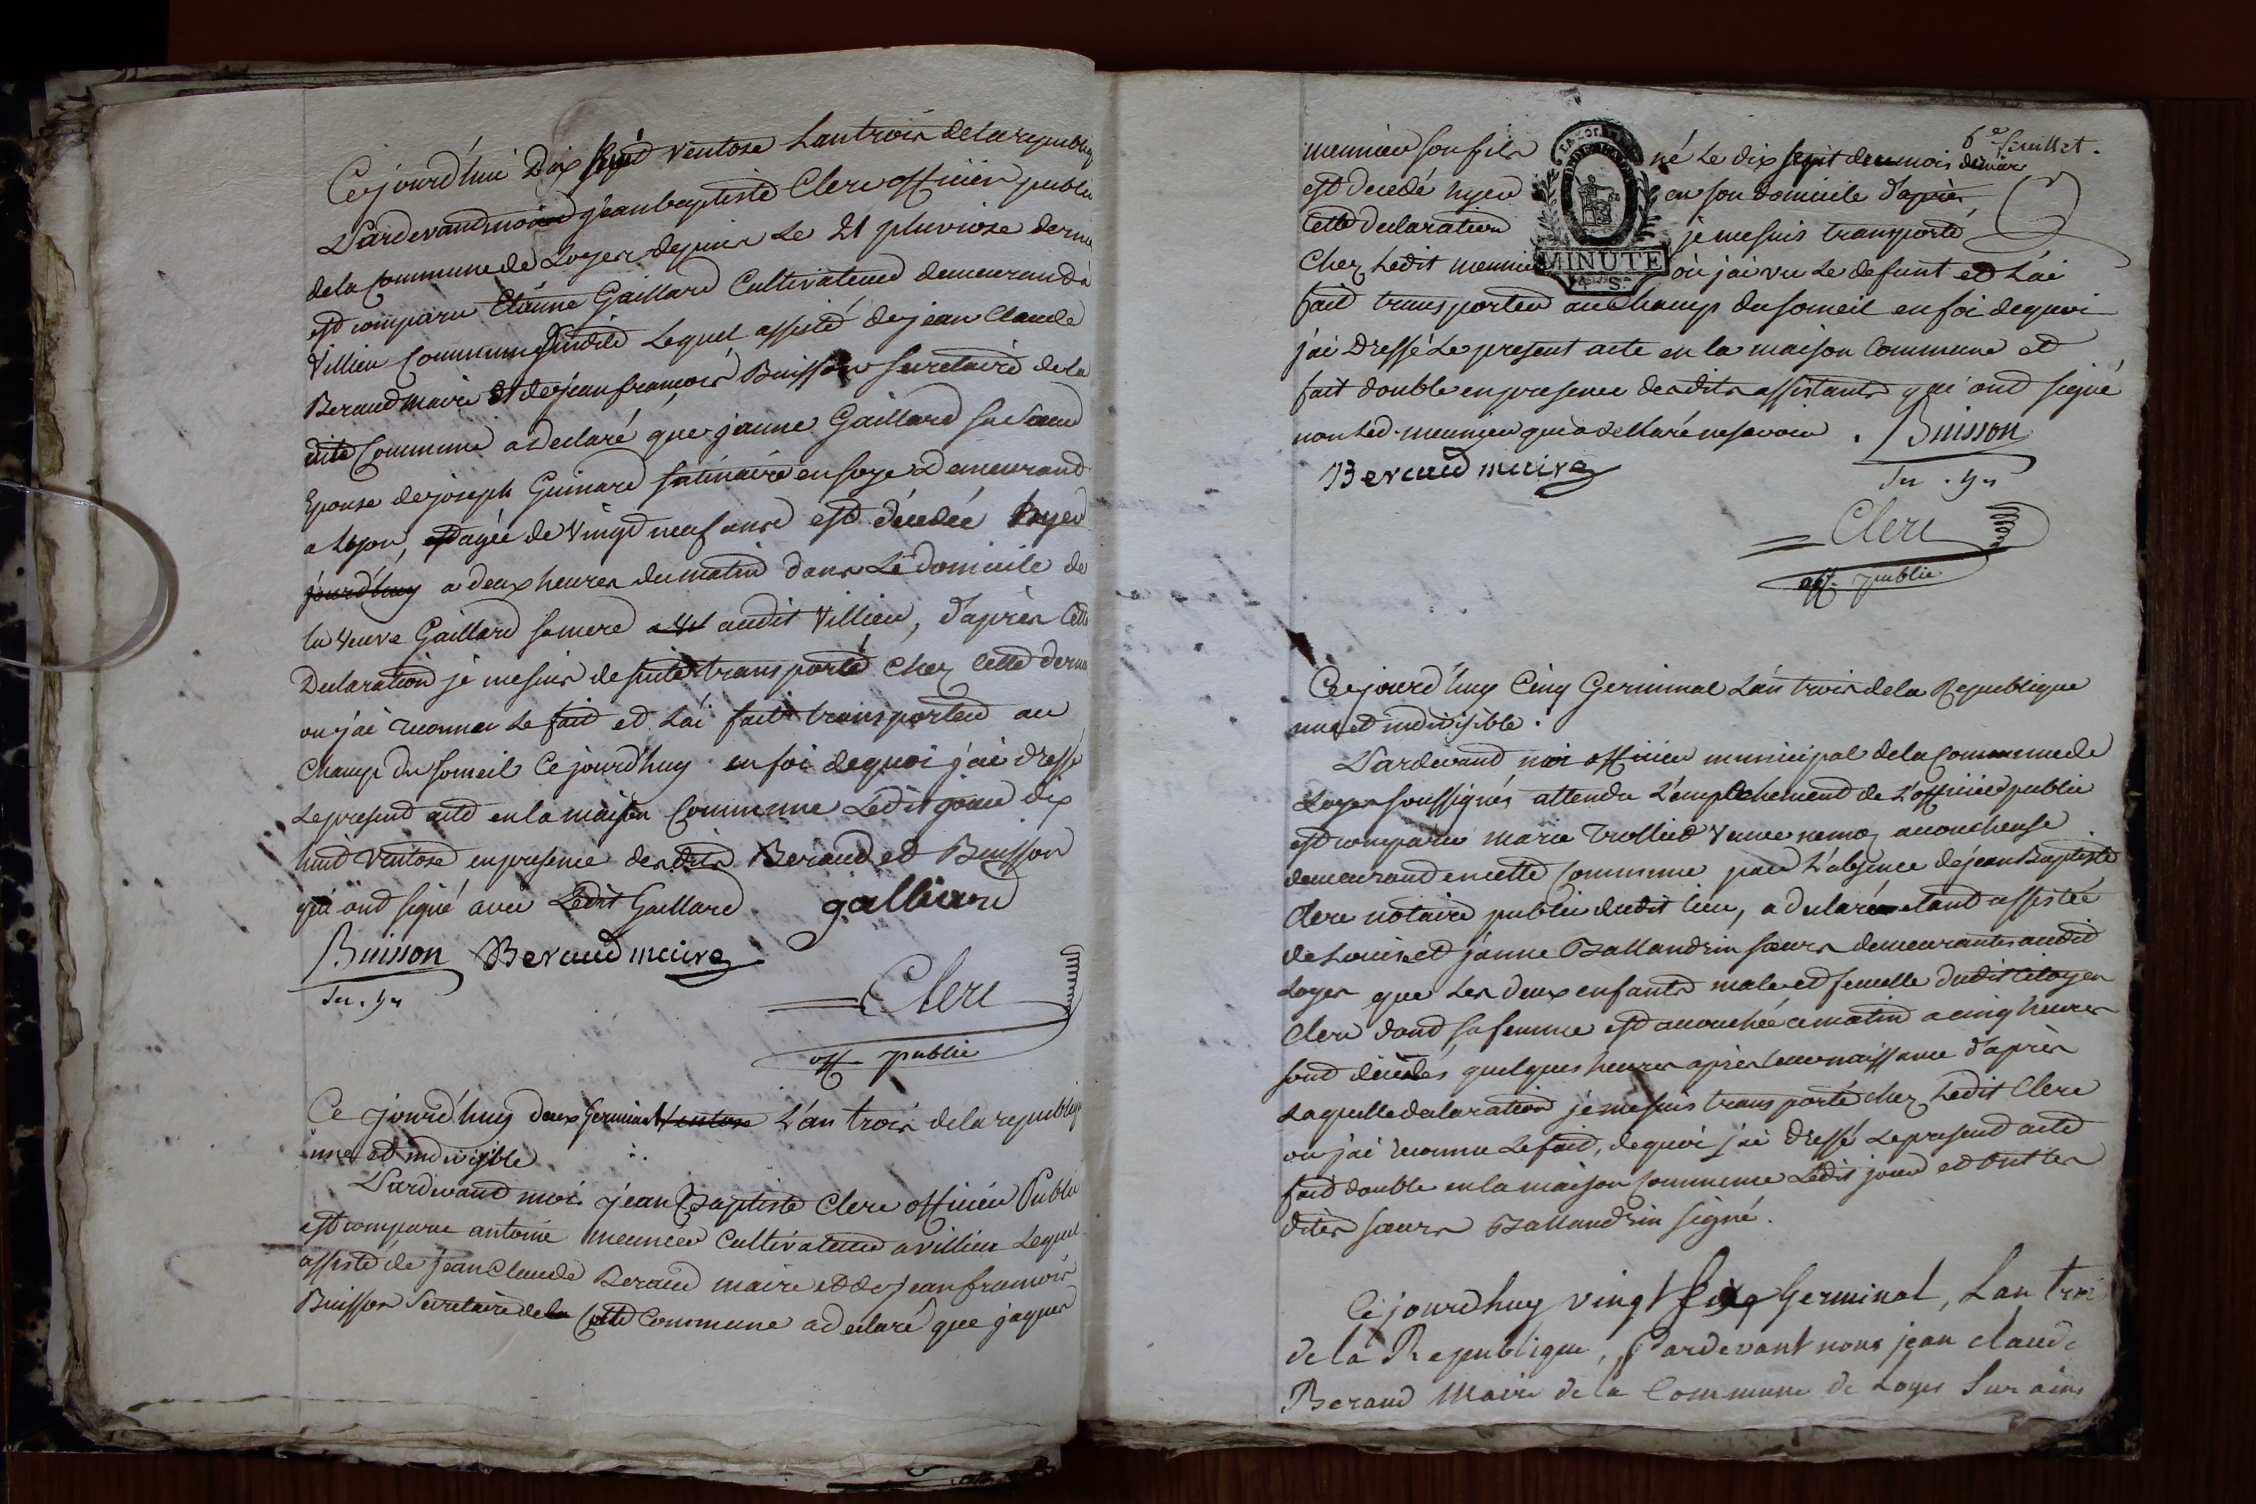 Cejourd'hui Dix huit Ventose Lantrois delarepubliq
Pardevandmoi jeanbaptiste Clerc officier public
dela Commune de Loyes depuis Le 21 pluviose dernier
est comparu Etienne Gaillard Cultivateur demeurand a
Villieu Commune Lequel assisté dejean Claude
Beraud maire et dejeanfrançois Buisson Secretaire dela
dite Commune adeclaré que jeanne Gaillard sa Sœur
Epouse dejoseph Guinard satinaire en soye demeurand
a Lyon, agée de Vingt neuf ans est décédée hyer
jourd'huy a deux heures du matin dans Le domicile de
la veuve Gaillard samere audit Villieu, d'après Cette
Declaration je mesuis desuite transporté Chez Cette derni
ou j'ai reconnu Le fait et L'ai fait transporter au
Champ du Someil Cejourd'huy en foi dequoi j'ai dressé
Lepresend acte enlamaison Commune Ledit jour dix
huit Ventose en presence desdits Beraud et Buisson
qui ond signé avec Ledit Gaillard galliard
Buisson Beraud maire
Secr.
Clerc
off. public
Ce jourd'huy deux Germinal Ventose L'an trois dela republiq
une et indivisible
Pardevand moi jean Baptiste Clerc officier Public
est comparu antoine meunier Cultivateur a villieu Lequel
assisté de jean Claude Beraud maire et de jean françois
Buisson Secretaire dela Cette Commune adeclaré que jaques
6e feuillet.
meunier son fils né Le dix sept du mois dernier
est decedé hyer en son domicile d'après
Cette declaration je mesuis transporté
Chez Ledit meunier où j'ai vu Le defunt et L'ai
MINUTE
fait transporter au Champ du Someil en foi dequoi
j'ai Dressé Le present acte en la maison Commune et
fait double en presence desdits assistants qui ond signé
non Led. meunier qui a declaré nesavoir. Buisson
Beraud maire
Secr.
Clerc
off. public
Cejourd'huy Cinq Germinal L'an trois dela Republique
une et indivisible.
Pardevand moi officier municipal dela Commune de
Loyes soussignés attendu L'empêchement de L'officier public
est comparue marie Trollied Veuve accoucheuse
demeurand encette Commune par L'absence dejean Baptiste
Clerc notaire public dudit lieu, a declaré etant assistée
de Louise et jeanne Ballandrin sœurs demeurantes audit
Loyes que Les deux enfants male et femelle dudit Citoyen
Clerc dond sa femme est accouchée ce matin a cinq heures
sont décédés quelques heures après leur naissance d'après
Laquelle declaration je mesuis transporté chez Ledit Clerc
ou j'ai reconnu Le fait, dequoi j'ai dressé Lepresend acte
fait double en la maison Commune Ledit jour et ont Les
dites sœurs Ballandrin signé.
Cejourdhuy vingt Germinal, Lan troi
de la Republique, Pardevant nous jean claude
Beraud Maire de la Commune de Loyes Sur ains